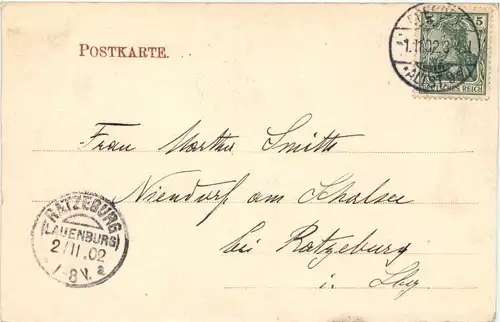 POSTKARTE.
5
1.11.02.3-4N
DEUTSCHES REICH
Frau Martha Smith
Niendorf am Schalsee
bei Ratzeburg
i. Lbg.
RATZEBURG
(LAUENBURG)
2/11.02
7-8V. a